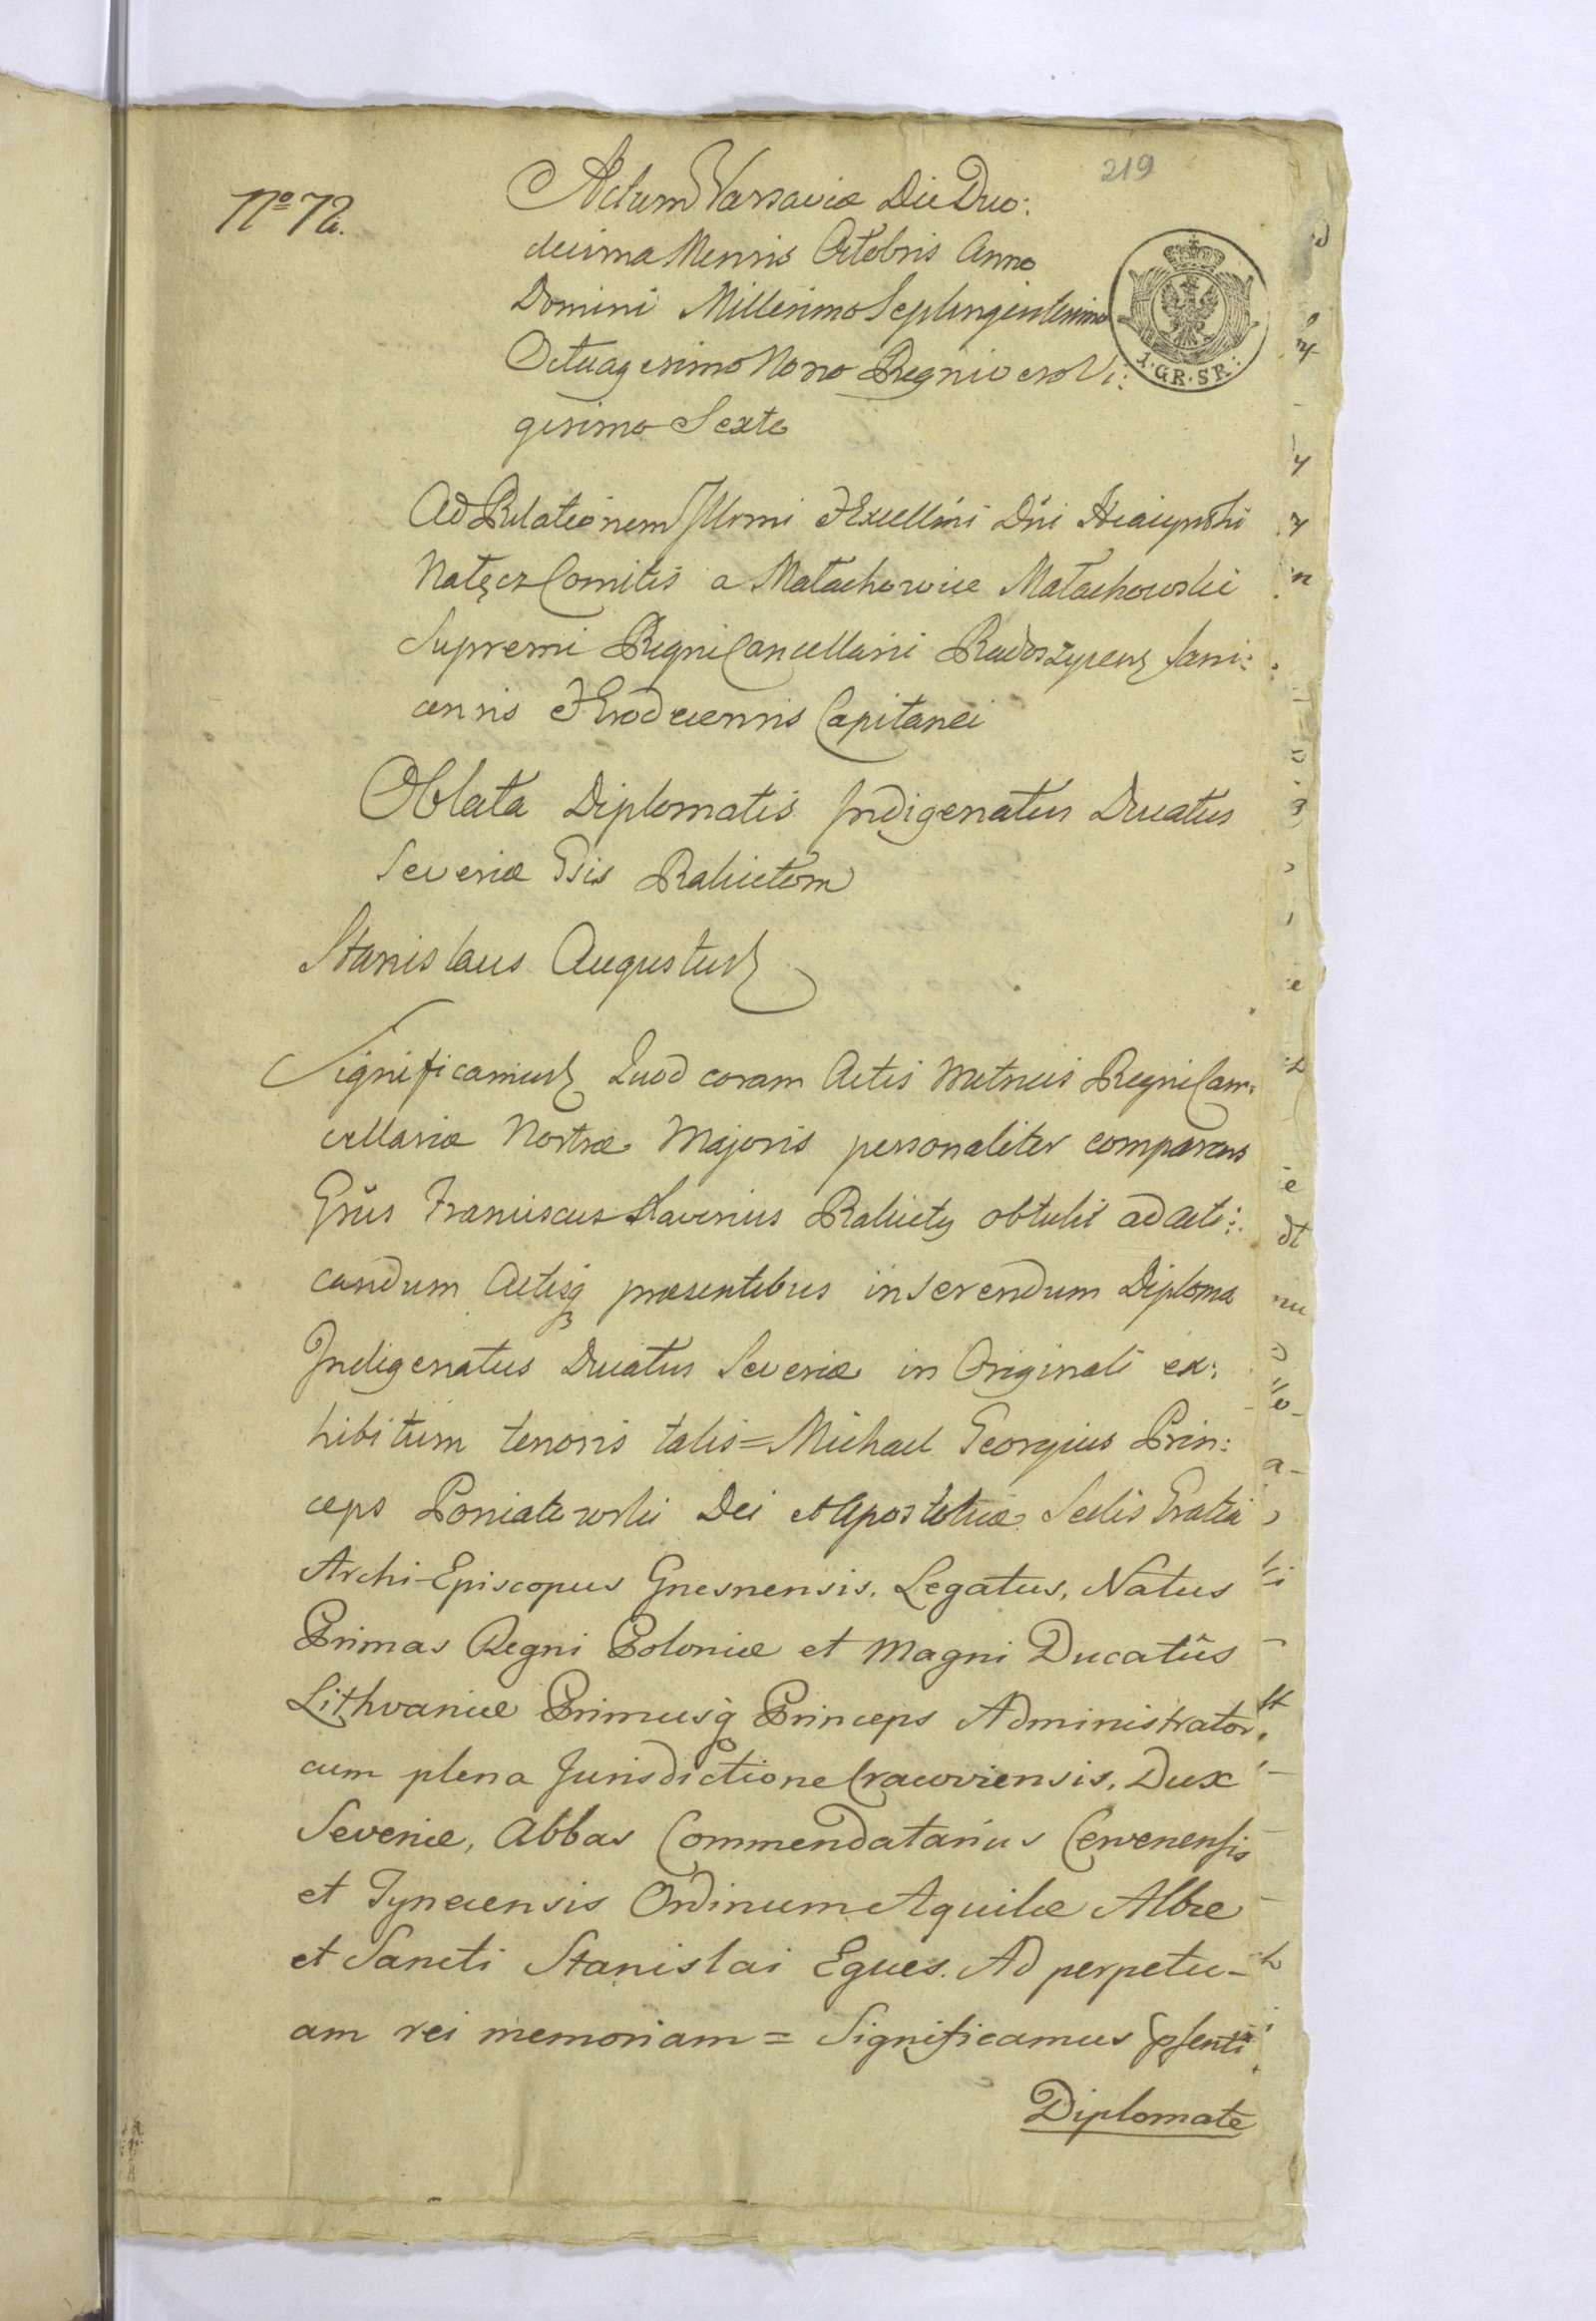 219
Nº 72.
Actum Varsaviæ Die Duo:
decima Mensis Octobris Anno
Domini Millesimo Septingentesimo
Octuagesimo Nono Regni vero Vi:
gesimo Sexto
1·GR·SR·
Ad Relationem Illmi & Excellmi Dni Hiacynthi
Nałęcz Comitis a Małachowice Małachowski
Supremi Regni Cancellarii Radoszycens
censis & Capitanei
Oblata Diplomatis Indigenatus Ducatus
Severiæ Gsis Rahietom
Stanislaus Augustus
Significamus Quod coram Actis Metrices Regni Can:
cellariæ Nostræ Majoris personaliter comparens
Grus Franciscus Xaverius Rahiety obtulit ad acti:
candum Actisq presentibus inserendum Diploma
Indigenatus Ducatus Severiæ in Originali ex:
hibitum tenoris talis = Michael Georgius Prin:
ceps Poniatowski Dei et Apostolicæ Sedis Gratia
Archi-Episcopus Gnesnensis. Legatus, Natus
Primas Regni Poloniæ et Magni Ducatûs
Lithvaniæ Primusq Princeps Administrator
cum plena Jurisdictione Cracoviensis, Dux
Severiæ, Abbas Commendatarius Cervenensis
et Tynecensis Ordinum Aquilæ Albæ
et Sancti Stanislai Eques. Ad perpetu-
am rei memoriam = Significamus psenti
Diplomate